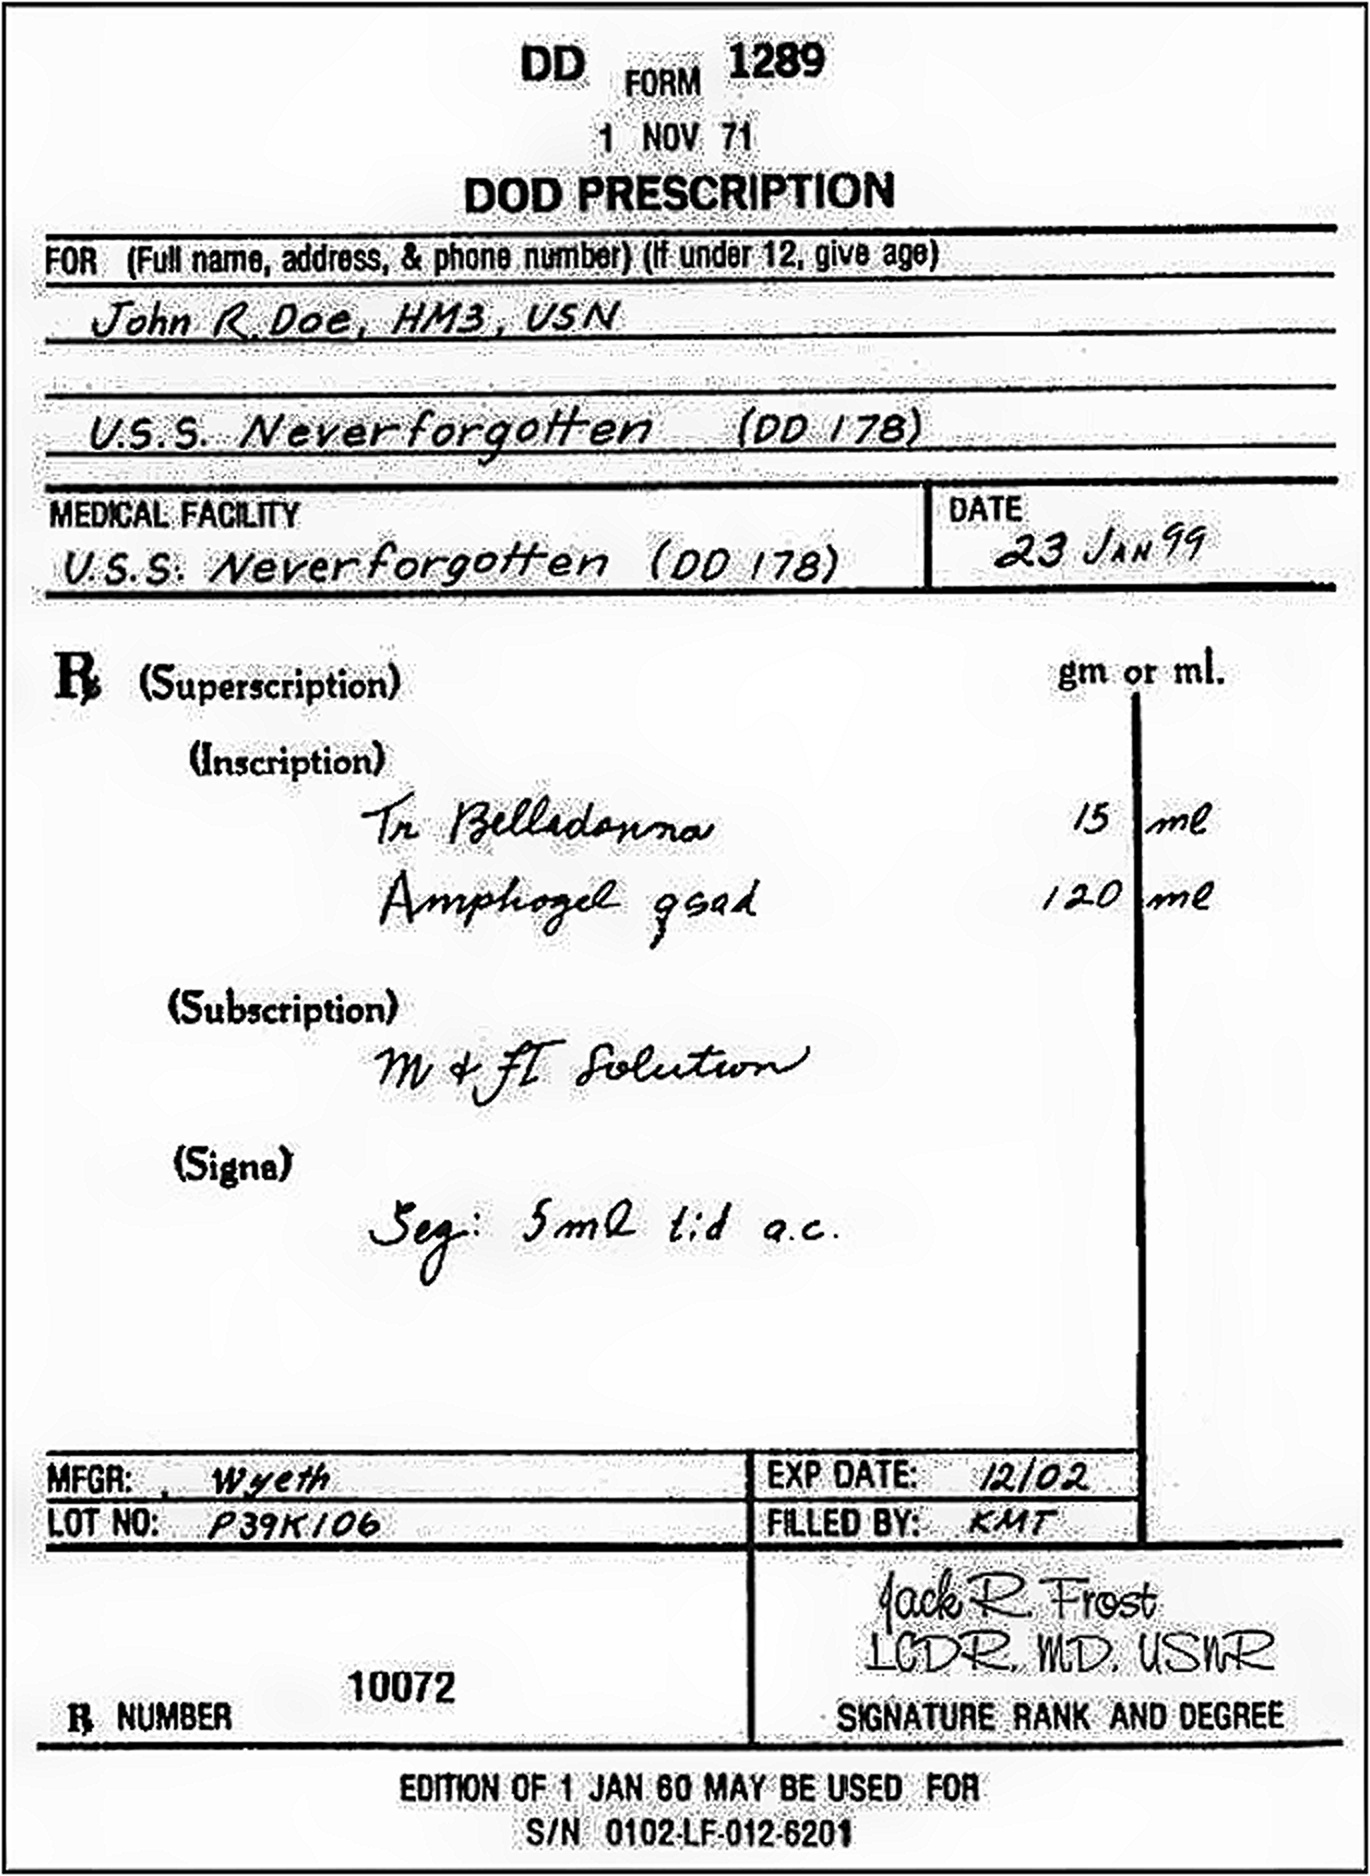 DD FORM 1289
1 NOV 71
DOD PRESCRIPTION
FOR (Full name, address, & phone number) (If under 12, give age)
John R. Doe, HM3, USN
U.S.S. Neverforgotten (DD 178)
MEDICAL FACILITY
U.S.S. Neverforgotten (DD 178)
DATE
23 JAN 99
℞ (Superscription)
gm or ml.
(Inscription)
Tr Belladonna 15 ml
Amphogel qsad 120 ml
(Subscription)
M & ft Solution
(Signa)
Sig: 5ml tid a.c.
MFGR: Wyeth
EXP DATE: 12/02
LOT NO: P39K106
FILLED BY: KMT
Jack R. Frost
LCDR, MD, USNR
SIGNATURE RANK AND DEGREE
10072
℞ NUMBER
EDITION OF 1 JAN 60 MAY BE USED FOR
S/N 0102-LF-012-6201